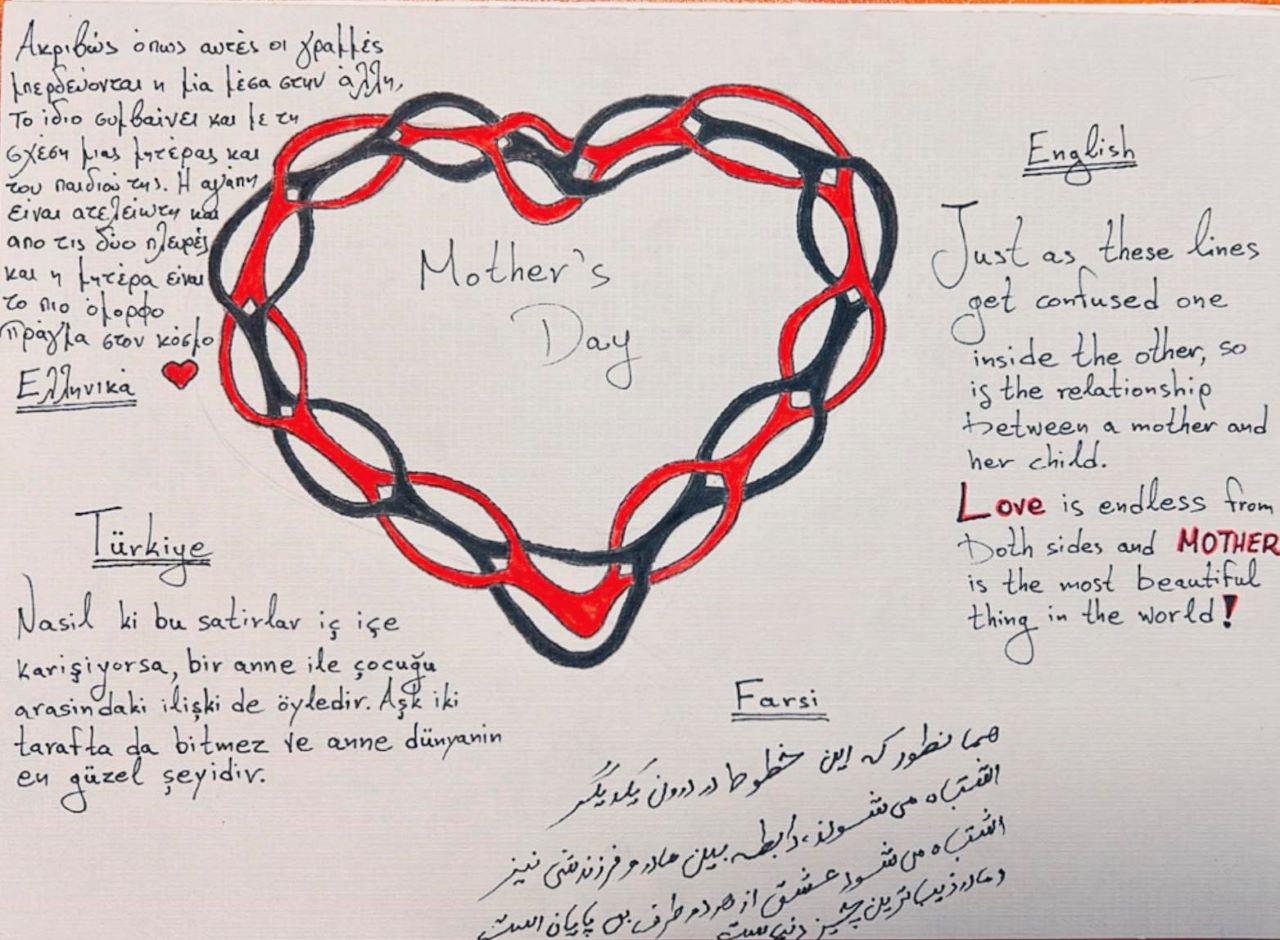 Ακριβώς όπως αυτές οι γραμμές
μπερδεύονται η μία μέσα στην άλλη,
το ίδιο συμβαίνει και με τη
σχέση μιας μητέρας και
του παιδιού της. Η αγάπη
είναι ατελείωτη και
απο τις δύο πλευρές
και η μητέρα είναι
το πιο όμορφο
πράγμα στον κόσμο
Ελληνικά
Mother's
Day
English
Just as these lines
get confused one
inside the other, so
is the relationship
between a mother and
her child.
Love is endless from
both sides and MOTHER
is the most beautiful
thing in the world!
Türkiye
Nasil ki bu satirlar iç içe
karişiyorsa, bir anne ile çocuğu
arasindaki ilişki de öyledir. Aşk iki
tarafta da bitmez ve anne dünyanin
en güzel şeyidir.
Farsi
همانطور که این خطوط در درون یکدیگر
اشتباه می شوند، رابطه بین مادر و فرزندش نیز
اشتباه می شود عشق از هر دو طرف بی پایان است
و مادر زیباترین چیز دنیاست